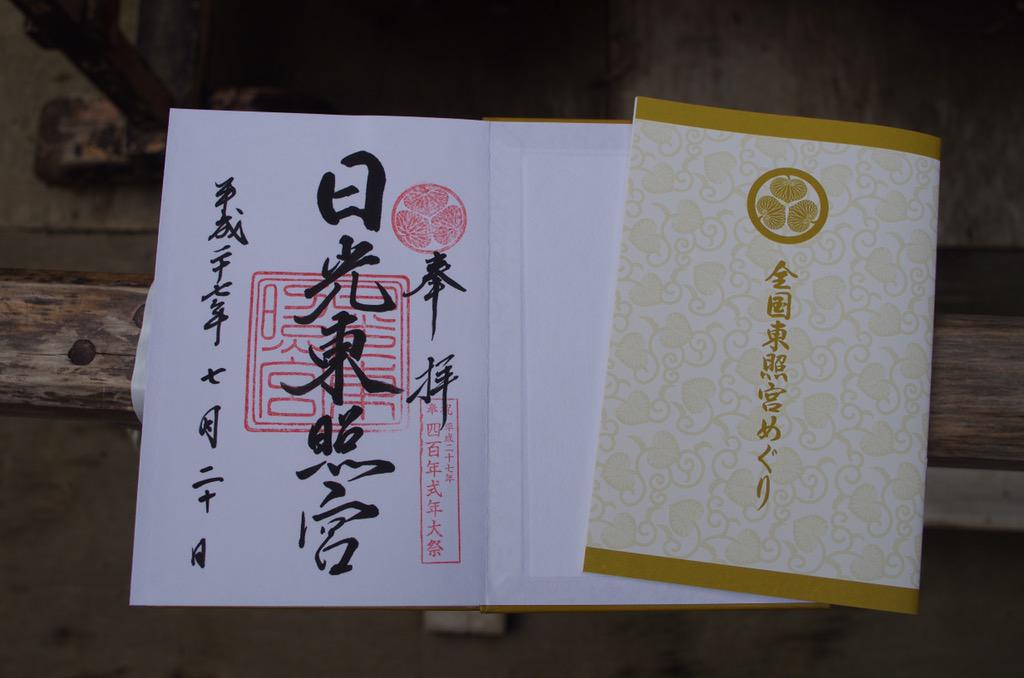 奉拝
日光東照宮
平成二十七年 七月 二十日
祝 平成二十七年
奉 四百年式年大祭
全国東照宮めぐり